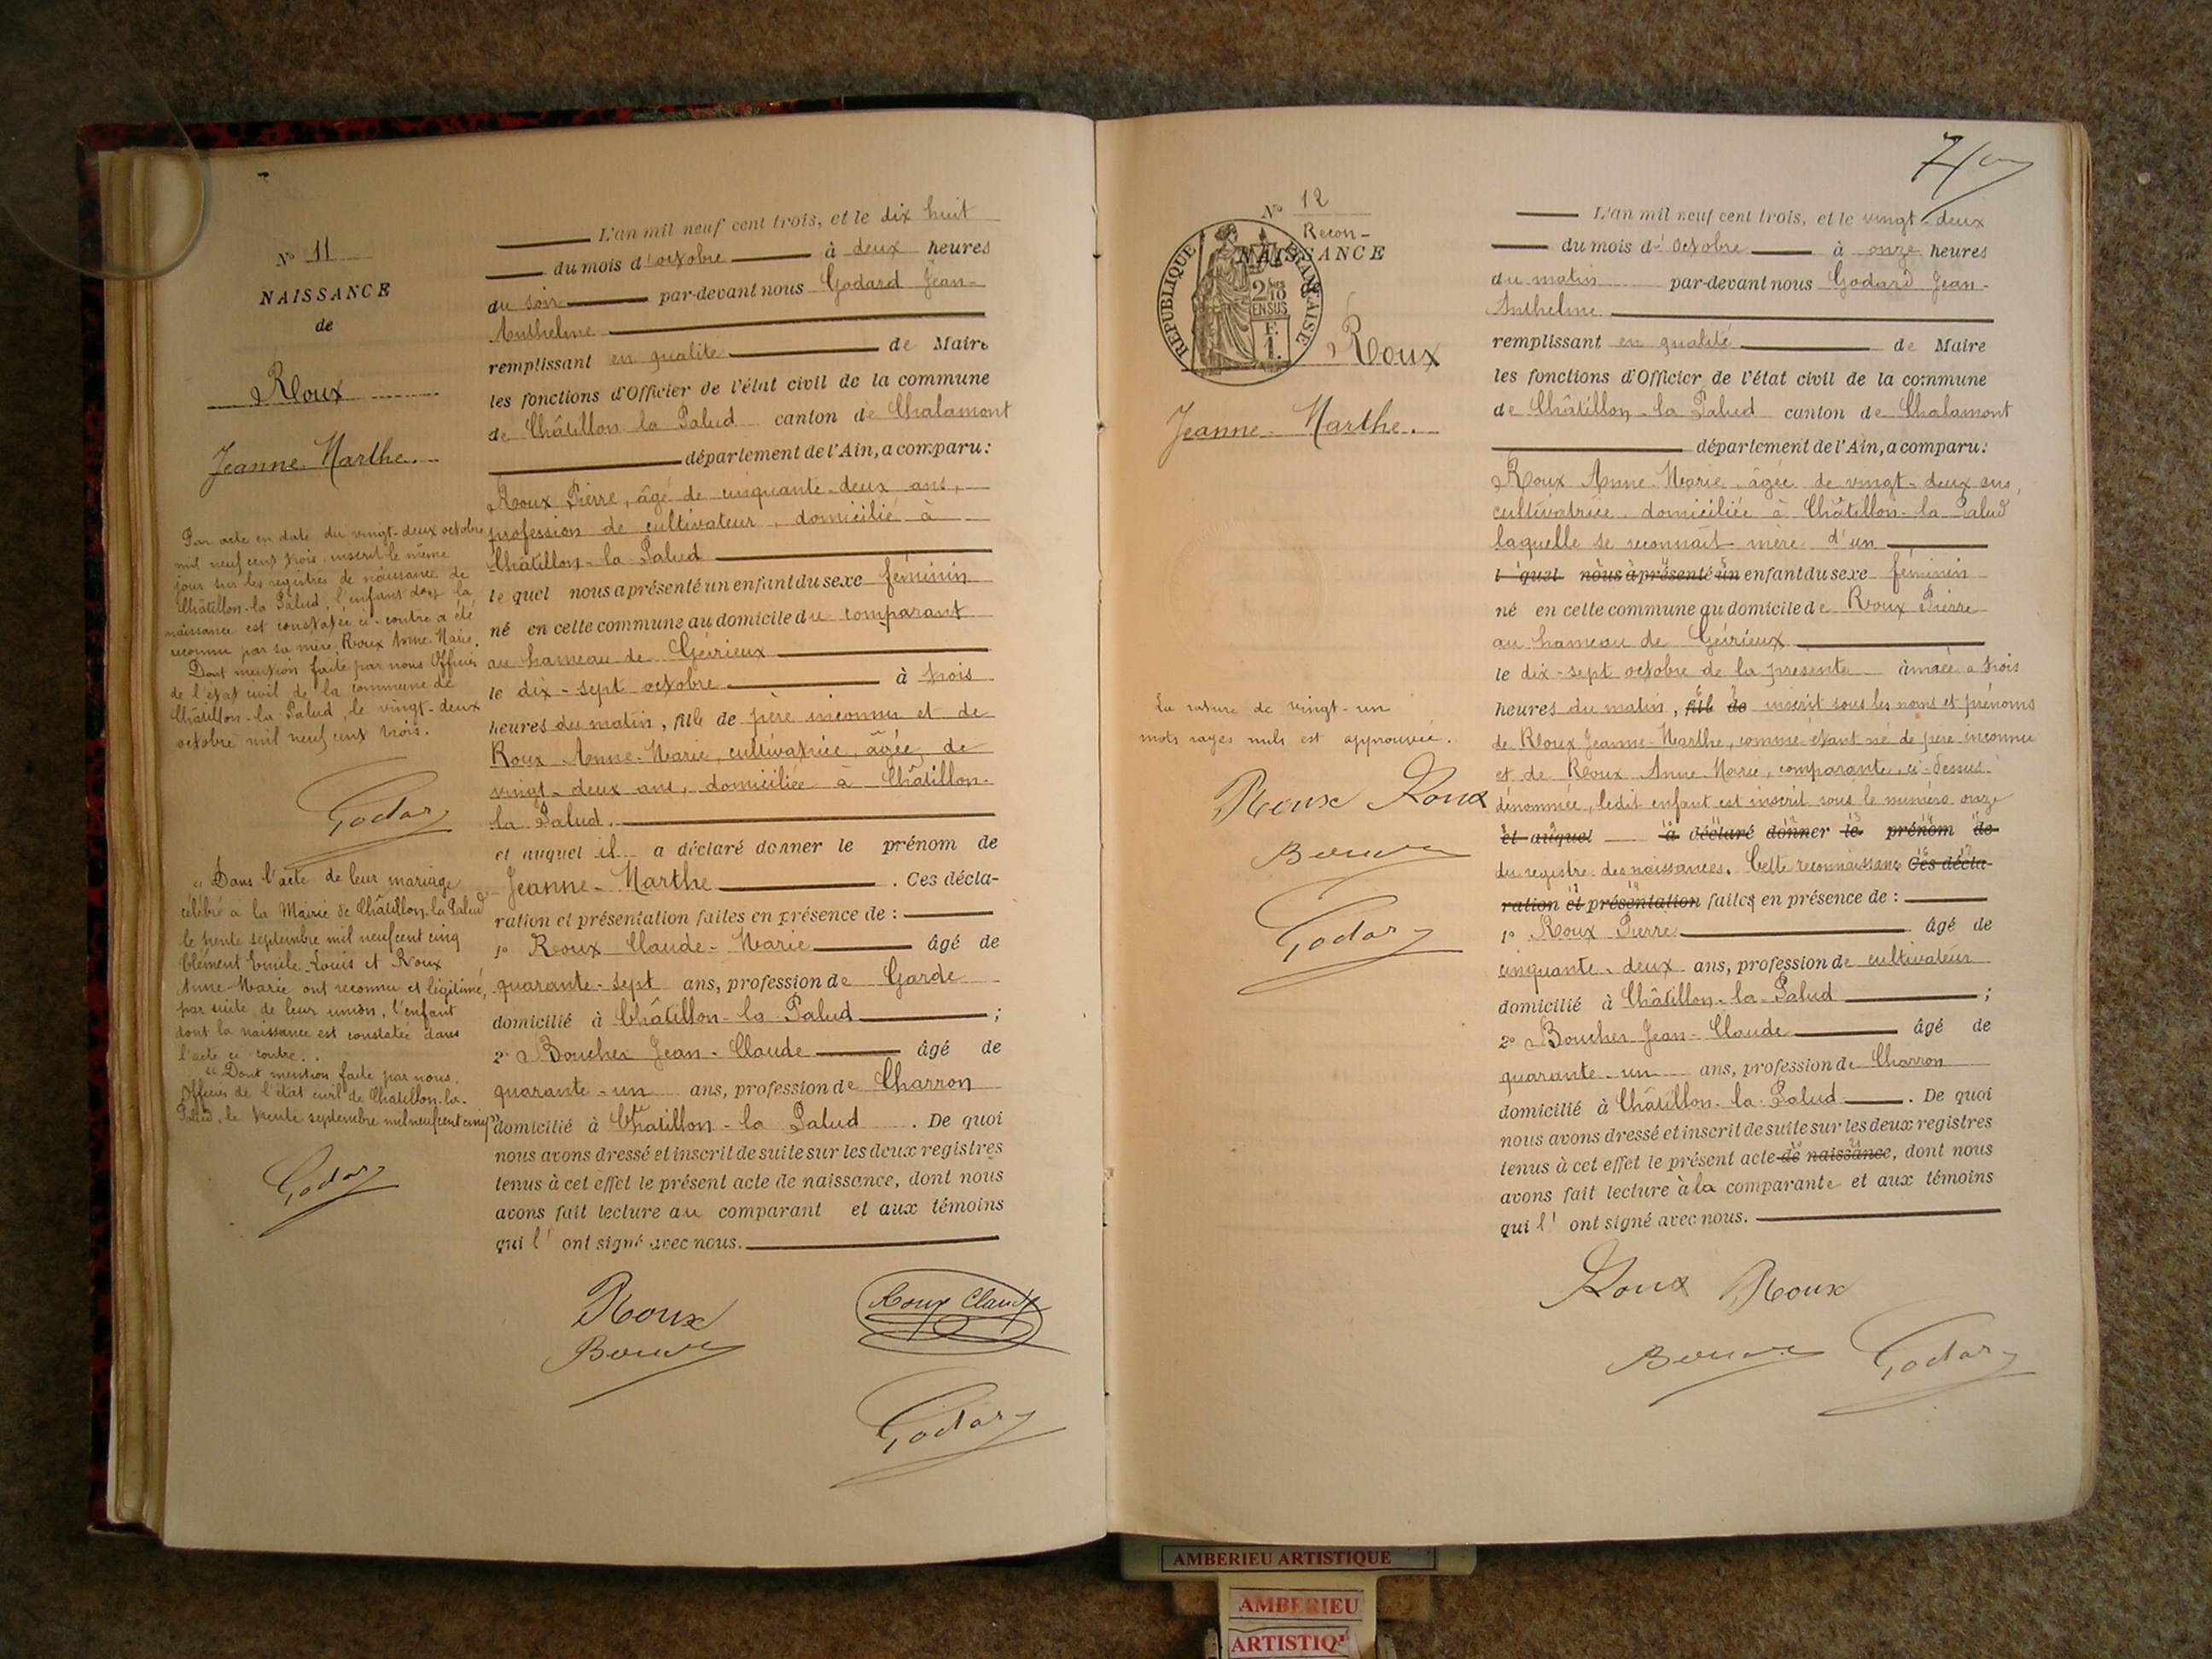 N° 11
NAISSANCE
de
Roux
Jeanne-Marthe.
Par acte en date du vingt-deux octobre
mil neuf cent trois, inscrit le même
jour sur les registres de naissance de
Châtillon-la Palud, l'enfant dont la
naissance est constatée ci-contre a été
reconnu par sa mère Roux Anne-Marie.
Dont mention faite par nous Officier
de l'état civil de la commune de
Châtillon-la Palud, le vingt-deux
octobre mil neuf cent trois.
Godard
"Dans l'acte de leur mariage
célébré à la Mairie de Châtillon-la Palud
le trente septembre mil neuf cent cinq
Clément Emile-Louis et Roux
Anne-Marie ont reconnu et légitimé,
par suite de leur union, l'enfant
dont la naissance est constatée dans
l'acte ci contre.
"Dont mention faite par nous,
Officier de l'état civil de Châtillon-la-
Palud, le trente septembre mil neuf cent cinq"
Godard
L'an mil neuf cent trois, et le dix huit
du mois d'octobre à deux heures
du soir par-devant nous Godard Jean-
Anthelme
remplissant en qualité de Maire
les fonctions d'Officier de l'état civil de la commune
de Châtillon la Palud canton de Chalamont
département de l'Ain, a comparu:
Roux Pierre, âgé de cinquante-deux ans,
profession de cultivateur, domicilié à
Châtillon-la Palud
lequel nous a présenté un enfant du sexe féminin
né en cette commune au domicile du comparant
au hameau de Gévrieux
le dix-sept octobre à trois
heures du matin, fille de père inconnu et de
Roux Anne-Marie, cultivatrice, âgée de
vingt-deux ans, domiciliée à Châtillon-
la Palud.
et auquel il a déclaré donner le prénom de
Jeanne-Marthe . Ces décla-
ration et présentation faites en présence de :
1° Roux Claude-Marie âgé de
quarante-sept ans, profession de Garde
domicilié à Châtillon-la Palud ;
2° Boucher Jean-Claude âgé de
quarante-un ans, profession de Charron
domicilié à Châtillon-la Palud . De quoi
nous avons dressé et inscrit de suite sur les deux registres
tenus à cet effet le présent acte de naissance, dont nous
avons fait lecture au comparant et aux témoins
qui l' ont signé avec nous.
Roux Roux Claude
Godard
7
N° 12
Recon-
NAISSANCE
REPUBLIQUE FRANÇAISE
2/10
EN SUS
F.
1.
Roux
Jeanne-Marthe.
La rature de vingt-un
mots rayés nuls est approuvée.
Roux Roux
Godard
L'an mil neuf cent trois, et le vingt-deux
du mois d' octobre à onze heures
du matin par-devant nous Godard Jean-
Anthelme
remplissant en qualité de Maire
les fonctions d'Officier de l'état civil de la commune
de Châtillon-la Palud canton de Chalamont
département de l'Ain, a comparu:
Roux Anne-Marie, âgée de vingt-deux ans,
cultivatrice, domiciliée à Châtillon-la Palud
laquelle se reconnaît mère d'un
l quel nous a présenté un enfant du sexe féminin
né en cette commune au domicile de Roux Pierre
au hameau de Gévrieux
le dix-sept octobre de la présente année à trois
heures du matin, fill de inscrit sous les noms et prénoms
de Roux Jeanne-Marthe, comme étant né de père inconnu
et de Roux Anne-Marie, comparante, ci-dessus
dénommée, ledit enfant est inscrit sous le numéro onze
et auquel a déclaré donner le prénom de
du registre des naissances. Cette reconnaissance Ces décla-
ration et présentation faites en présence de :
1° Roux Pierre âgé de
cinquante-deux ans, profession de cultivateur
domicilié à Châtillon-la-Palud ;
2° Boucher Jean-Claude âgé de
quarante-un ans, profession de Charron
domicilié à Châtillon-la-Palud . De quoi
nous avons dressé et inscrit de suite sur les deux registres
tenus à cet effet le présent acte de naissance, dont nous
avons fait lecture à la comparante et aux témoins
qui l' ont signé avec nous.
Roux Roux
Godard
AMBERIEU ARTISTIQUE
AMBERIEU
ARTISTIQU